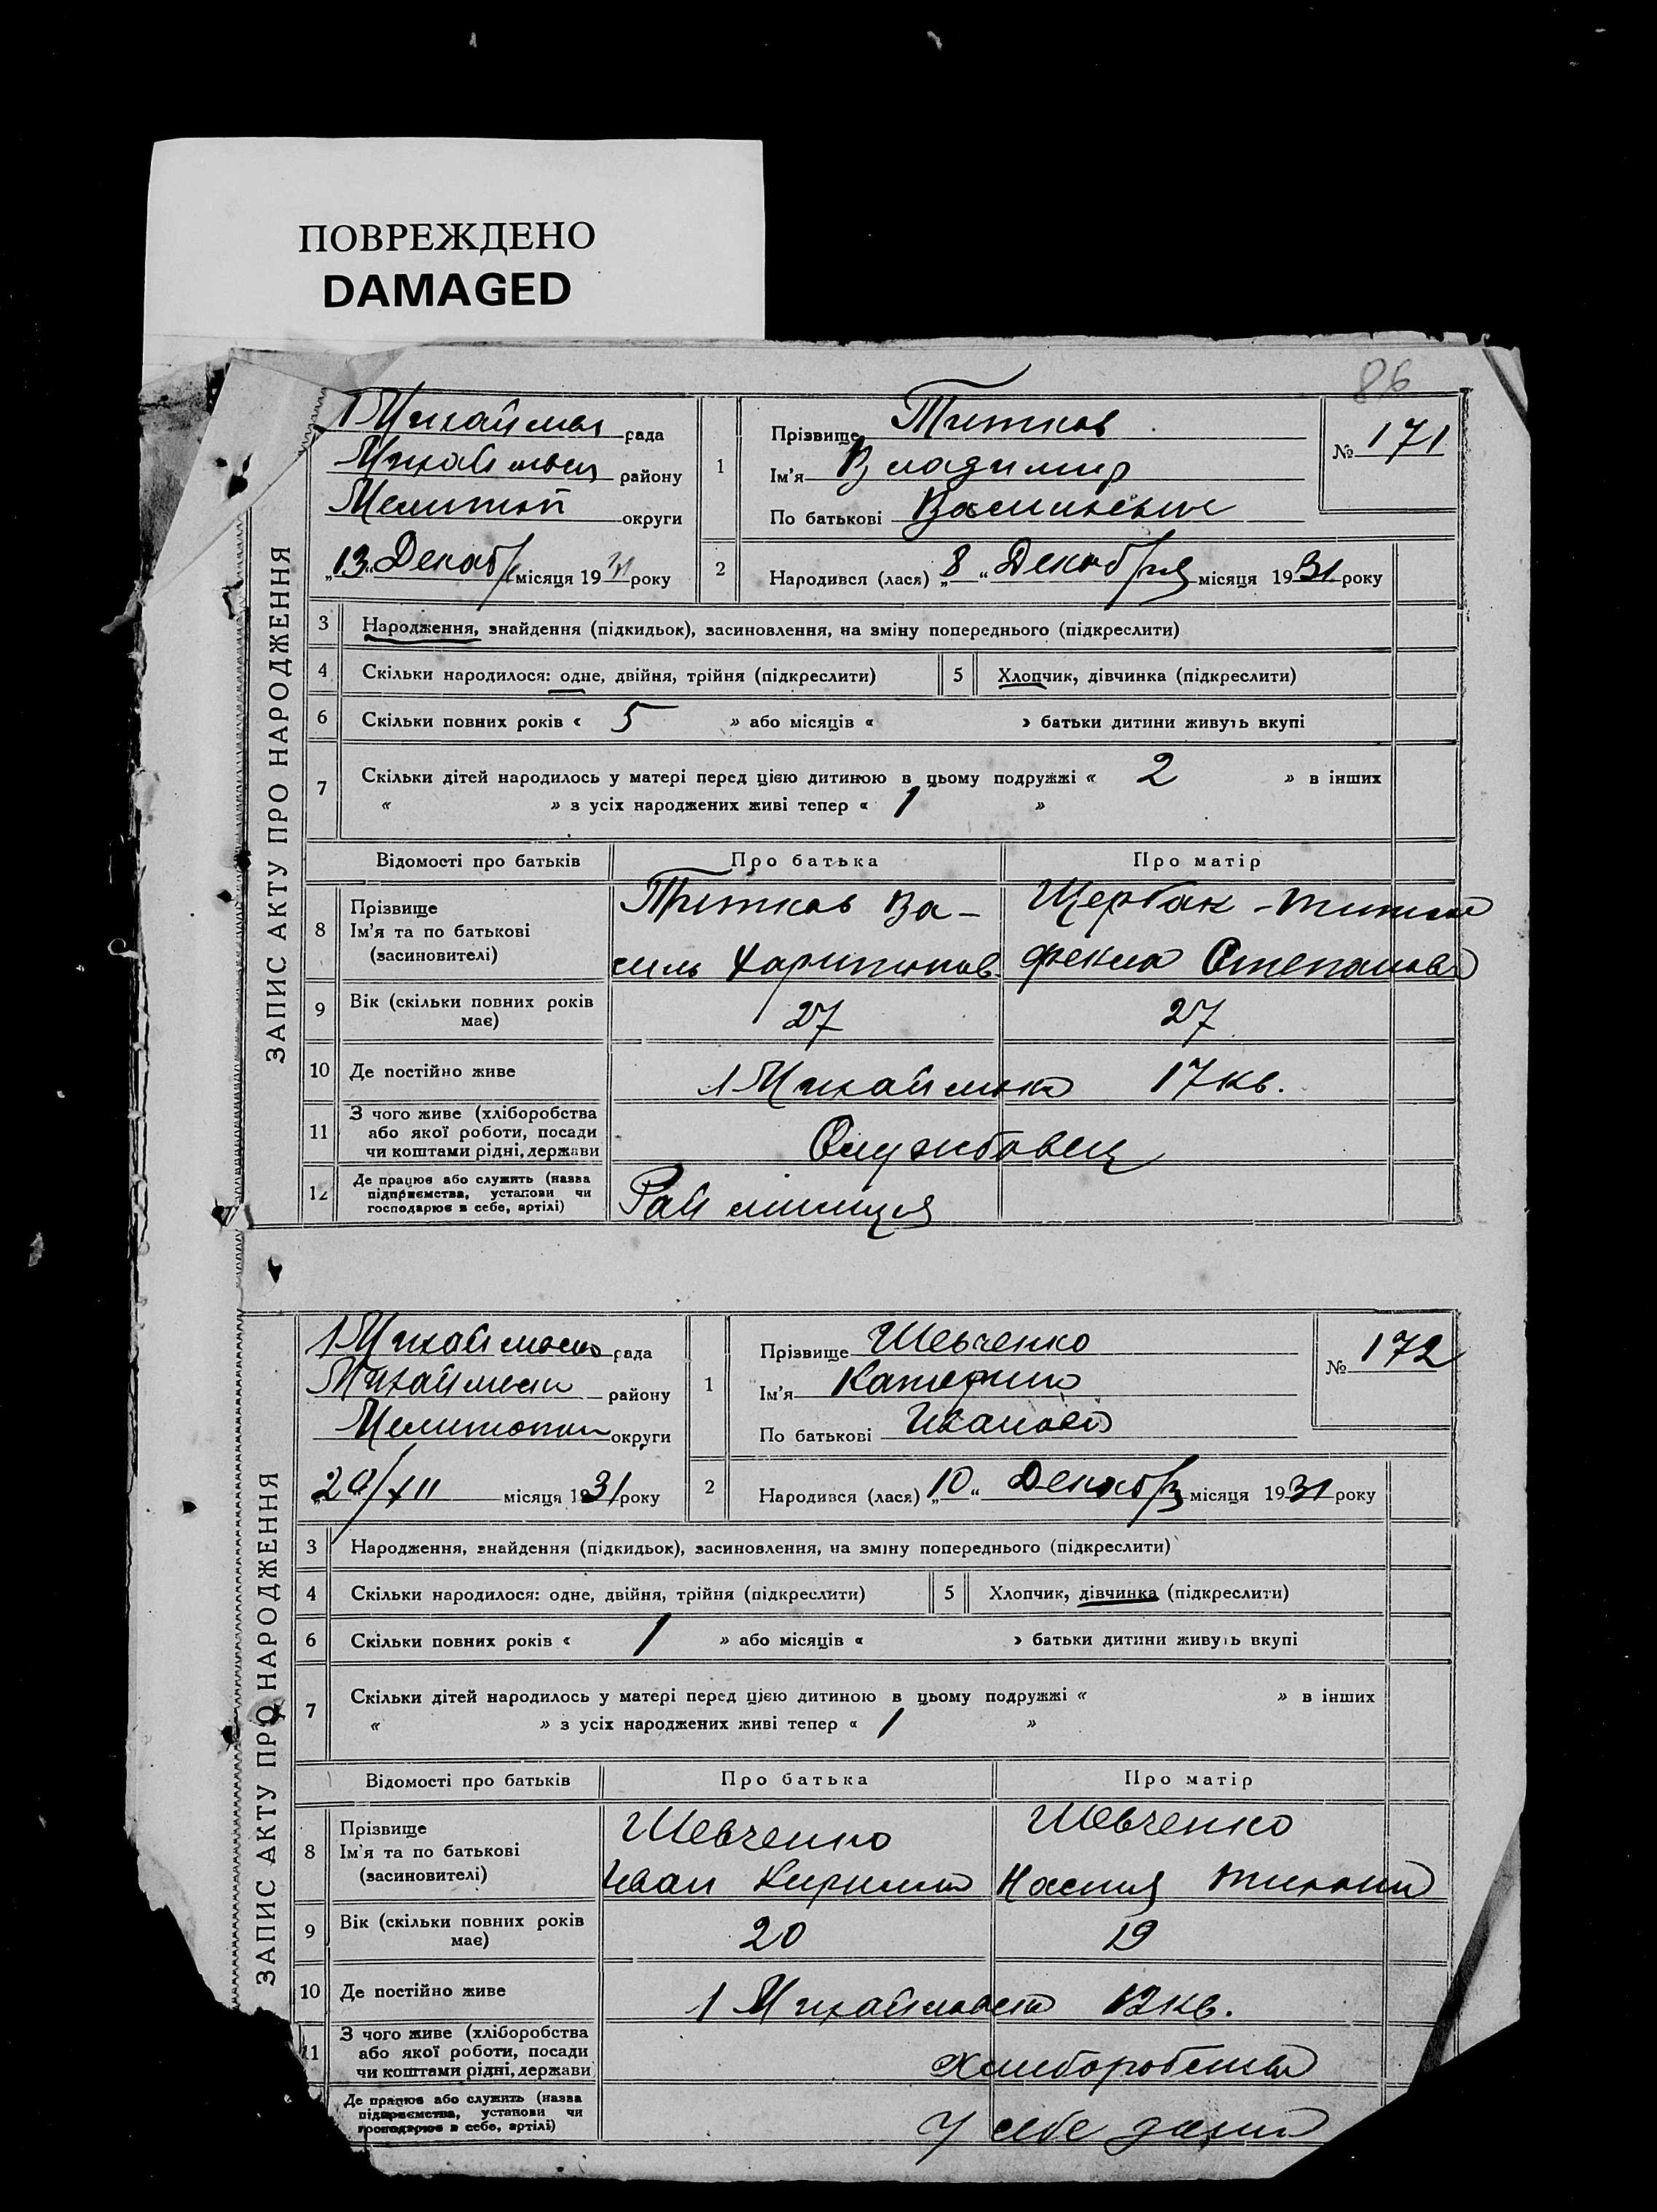 ПОВРЕЖДЕНО
DAMAGED
86
ЗАПИС АКТУ ПРО НАРОДЖЕННЯ
рада
району
Мелитоп округи
„13“ Декабр місяця 1931 року
1
Прізвище Титков
Ім'я Владимир
По батькові
№ 171
2
Народився (лася) „8“ Декабря місяця 1931 року
3 Народження, знайдення (підкидьок), засиновлення, на зміну попереднього (підкреслити)
4 Скільки народилося: одне, двійня, трійня (підкреслити)
5 Хлопчик, дівчинка (підкреслити)
6 Скільки повних років « 5 » або місяців « » батьки дитини живуть вкупі
7 Скільки дітей народилось у матері перед цією дитиною в цьому подружжі « 2 » в інших
« » з усіх народжених живі тепер « 1 »
Відомості про батьків Про батька Про матір
8 Прізвище
Ім'я та по батькові
(засиновителі)
Титков Ва-
силь Харитонов
Щербак -
Фекла Степановa
9 Вік (скільки повних років
має)
27 27
10 Де постійно живе
1 17 кв.
11 З чого живе (хліборобства
або якої роботи, посади
чи коштами рідні, держави
Службовец
12 Де працює або служить (назва
підприємства, установи чи
господарює в себе, артілі)
Рай милиция
ЗАПИС АКТУ ПРО НАРОДЖЕННЯ
рада
району
округи
20/XII місяця 1931 року
1
Прізвище Шевченко
Ім'я Катерина
По батькові Иванов
№ 172
2
Народився (лася) „10“ Декабр місяця 1931 року
3 Народження, знайдення (підкидьок), засиновлення, на зміну попереднього (підкреслити)
4 Скільки народилося: одне, двійня, трійня (підкреслити)
5 Хлопчик, дівчинка (підкреслити)
6 Скільки повних років « 1 » або місяців « » батьки дитини живуть вкупі
7 Скільки дітей народилось у матері перед цією дитиною в цьому подружжі « » в інших
« » з усіх народжених живі тепер « 1 »
Відомості про батьків Про батька Про матір
8 Прізвище
Ім'я та по батькові
(засиновителі)
Шевченко
Иван Кирилл
Шевченко
Настя
9 Вік (скільки повних років
має)
20 19
10 Де постійно живе
1 12 кв.
11 З чого живе (хліборобства
або якої роботи, посади
чи коштами рідні, держави
Хлиборобства
Де працює або служить (назва
підприємства, установи чи
господарює в себе, артілі)
У себе дома